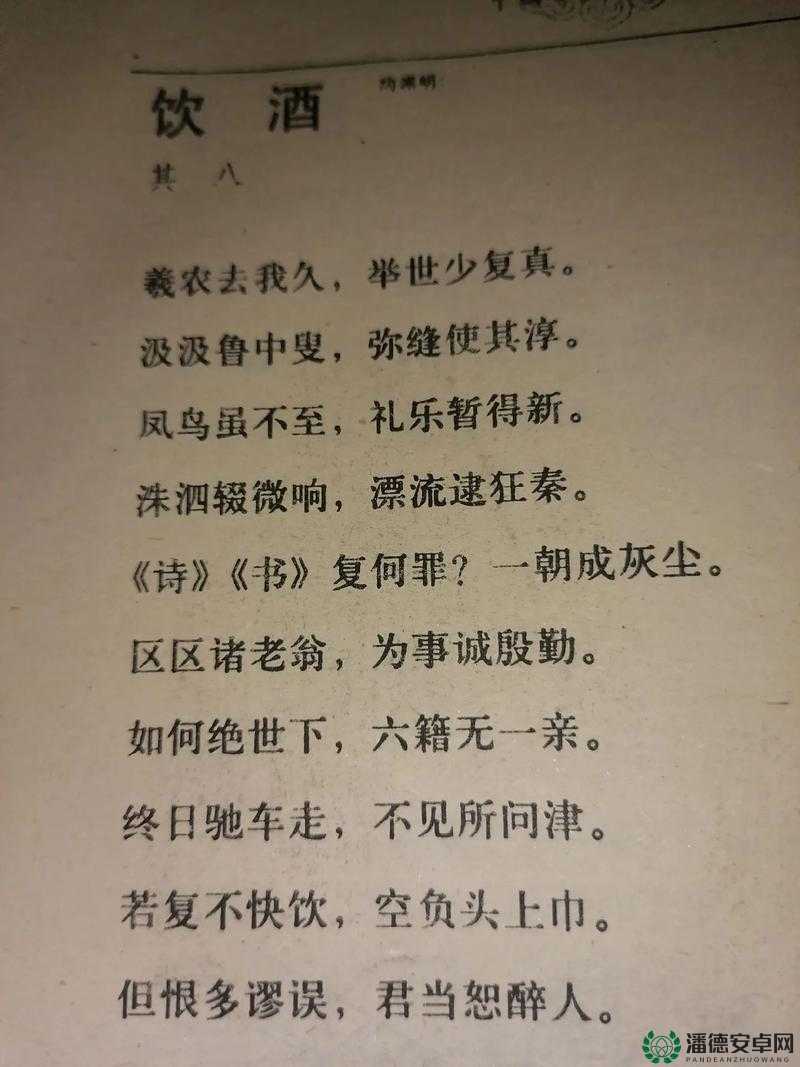 饮酒 陶渊明
其八
羲农去我久，举世少复真。
汲汲鲁中叟，弥缝使其淳。
凤鸟虽不至，礼乐暂得新。
洙泗辍微响，漂流逮狂秦。
《诗》《书》复何罪？一朝成灰尘。
区区诸老翁，为事诚殷勤。
如何绝世下，六籍无一亲。
终日驰车走，不见所问津。
若复不快饮，空负头上巾。
但恨多谬误，君当恕醉人。
潘德安卓网
PANDEANZHUOWANG